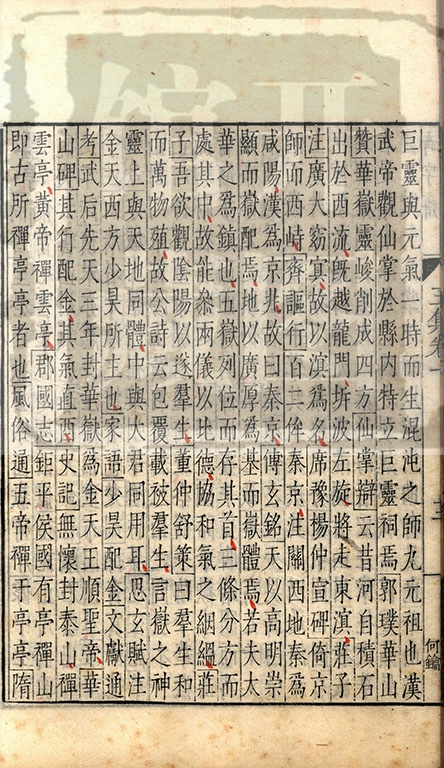 巨靈與元氣一時而生混沌之師九元祖也漢
武帝觀仙掌於縣內特立巨靈祠焉郭璞華山
贊華嶽靈峻削成四方仙掌辯云昔河自積石
出於西流旣越龍門圻波左旋將走東溟莊子
注廣大窈㝠故以溟爲名席豫楊仲宣碑倚京
師而西峙齊謳行百二侔秦京注關西地秦爲
咸陽漢爲京兆故曰秦京傅玄銘天以高明崇
顯而嶽配焉地以廣厚爲基而嶽體焉若夫太
華之爲鎮也五嶽列位而存其首三條分方而
處其中故能參兩儀以比德協和氣之絪縕莊
子吾欲觀陰陽以遂羣生董仲舒策曰羣生和
而萬物殖故公詩云包覆載被羣生言嶽之神
靈上與天地同體中與大君同用耳恩玄賦注
金天西方少昊所主也家語少昊配金文獻通
考武后先天三年封華嶽爲金天王順聖帝華
山碑其行配金其氣直西史記無懷封泰山禪
雲亭黃帝禪雲亭郡國志鉅平侯國有亭亭山
即古所禪亭亭者也風俗通五帝禪于亭亭隋
何鑰